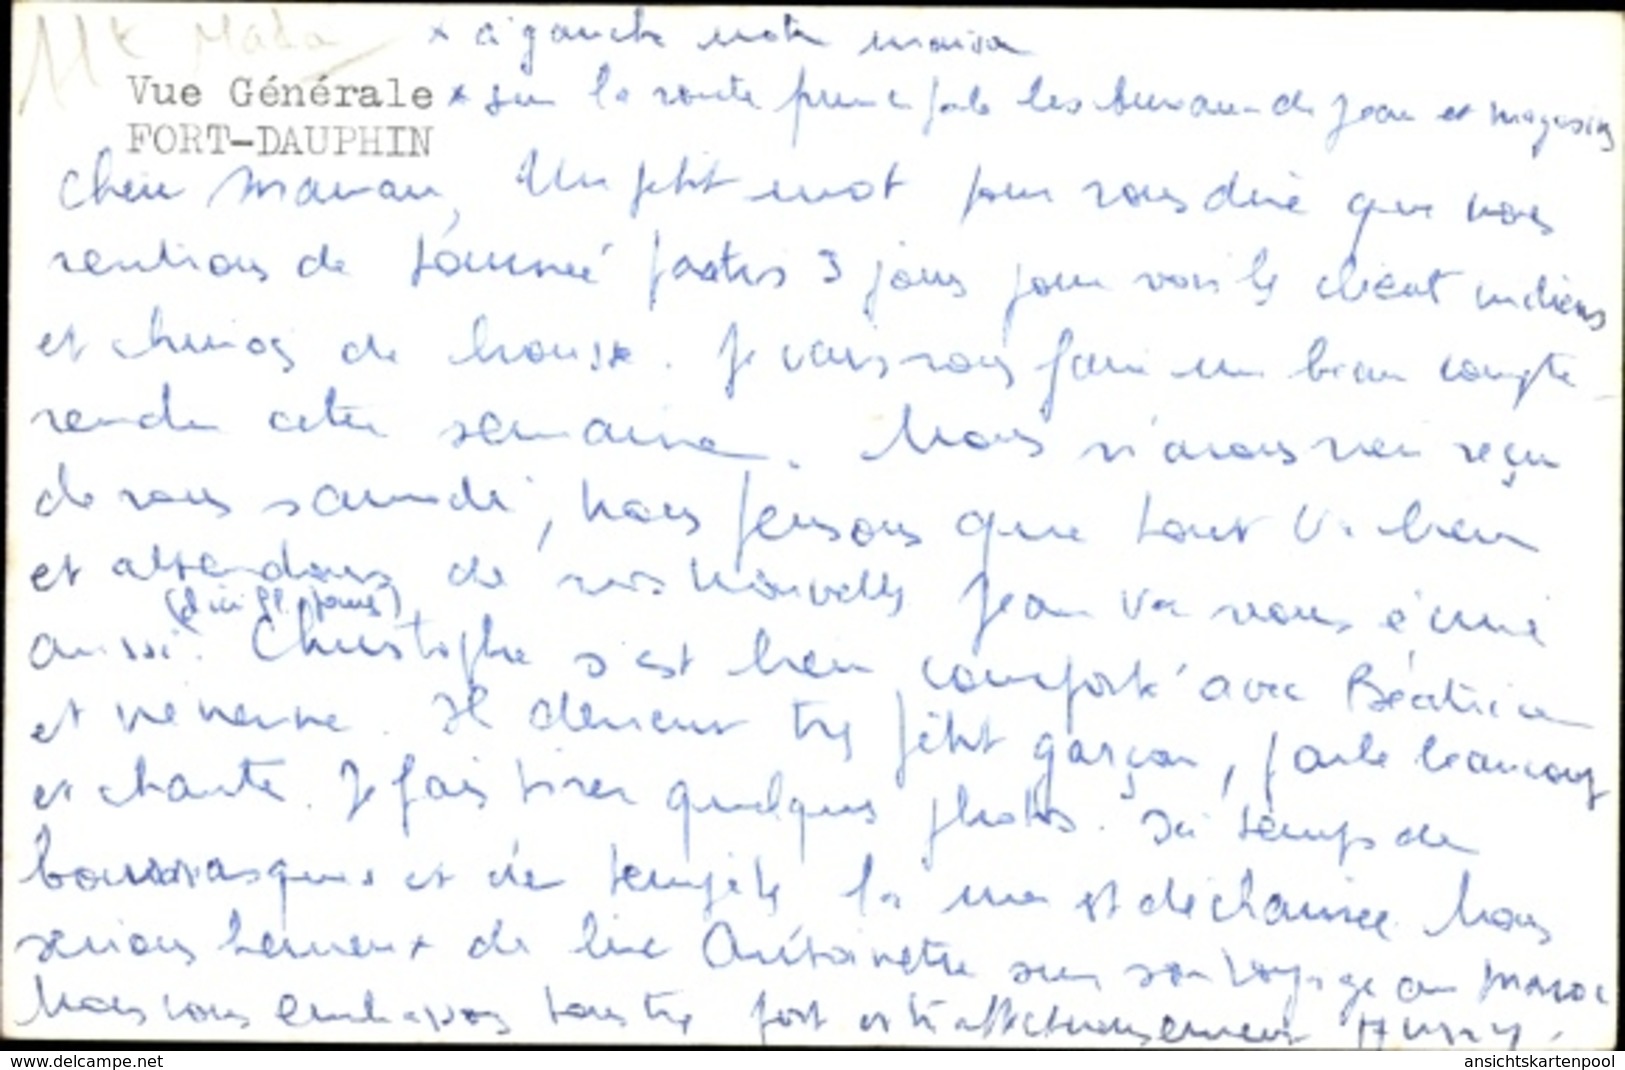 Mada
x à gauche notre maison
Vue Générale x sur la route principale les bureaux de Jean et magasins
FORT-DAUPHIN
Chère Maman, Un petit mot pour vous dire que nous
rentrons de tournée partis 3 jours pour voir les clients indiens
et chinois de brousse. Je vais vous faire un beau compte
rendu cette semaine. Nous n'avons rien reçu
de vous samedi, nous pensons que tout va bien
et attendons de vos nouvelles Jean va vous écrire
(d'ici jours)
aussi. Christophe s'est bien comporté avec Béatrice
et Il devient très petit garçon, parle beaucoup
et chante. Je fais tirer quelques photos. Ici temps de
bourrasques et de tempête la mer est déchainée. Nous
serions heureux de lire Antoinette sur son voyage au Maroc
Nous vous embrassons tous très fort et très affectueusement